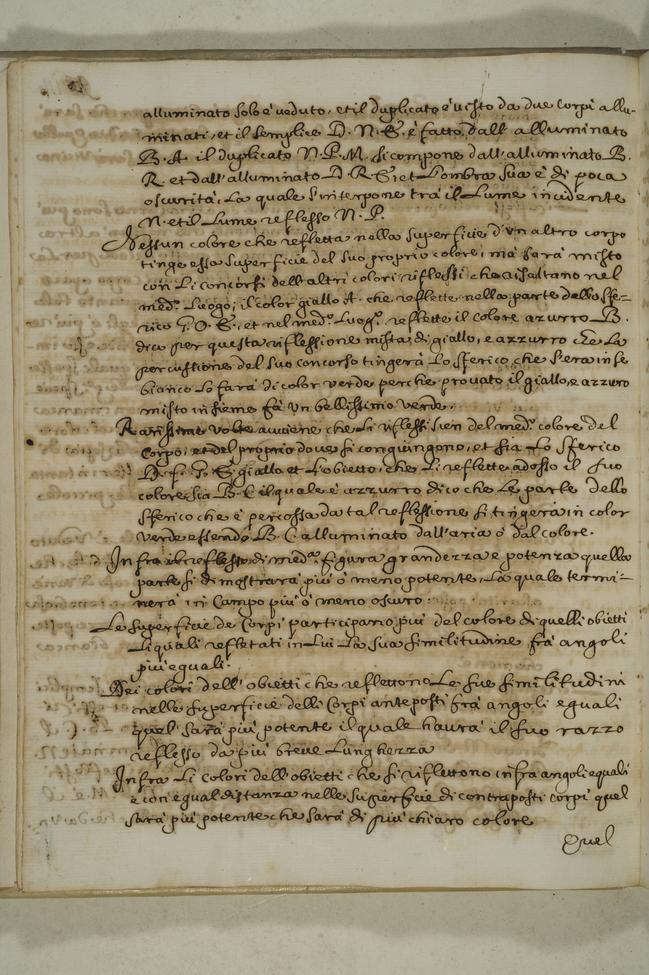 alluminato solo è veduto, et il duplicato è uisto da due corpi allu-
minati, et il semplice D. N. E. è fatto dall' alluminato
B. A. il duplicato N. P. M. si compone dall' alluminato B.
R. et dall' alluminato D. R. S. et L'ombra sua è di poca
oscurità, La quale s'interpone trà il Lume incidente
N. et il Lume reflesso N. P.
Nessun colore che refletta nella superficie d'un altro corpo
tinge essa superficie del suo proprio colore, mà sarà misto
con Li concorsi dell' altri colori riflessi che risaltano nel
med.º Luogo; il color giallo A. che reflette nella parte dello sfe-
rico et nel med.º Luogo reflette il colore azurro B.
dico per questa riflessione mista di giallo, e azzurro che La
percussione del suo concorso tingerà Lo sferico, che s'era in se
bianco Lo farà di color verde perche prouato il giallo, e azzuro
misto insieme fà un bellissimo verde.
Rarissime volte auuiene che Li riflessi sien del med.º colore del
Corpo, et del proprio doue si congiungono, et sia Lo sferico
D. F. G. E. giallo et L'obietto, che Li reflette adosso il suo
colore sia B. C. il quale è azzurro dico che Le parte dello
sferico che è percossa da tal reflessione si tingerà in color
verde essendo B. C. alluminato dall'aria ò dal colore.
Infra il reflesso di med.ª figura grandezza e potenza quella
parte si dimostrarà più ò meno potente, La quale termi-
nerà in Campo più ò meno oscuro.
Le superficie de Corpi participano più del colore di quelli obietti
Li quali refletati in Lui La sua similitudine frà angoli
più eguali.
Dei colori dell' obietti che reflettono Le sue similitudini
nelle superficie delli Corpi anteposti frà angoli eguali
quel sarà più potente il quale haurà il suo razzo
reflesso da più breue Lungherza
Infra Li colori dell' obietti che si riflettono infra angoli equali
e con egual distanza nelle superficie di contraposti corpi quel
sarà più potente che sarà di più chiaro colore
Quel